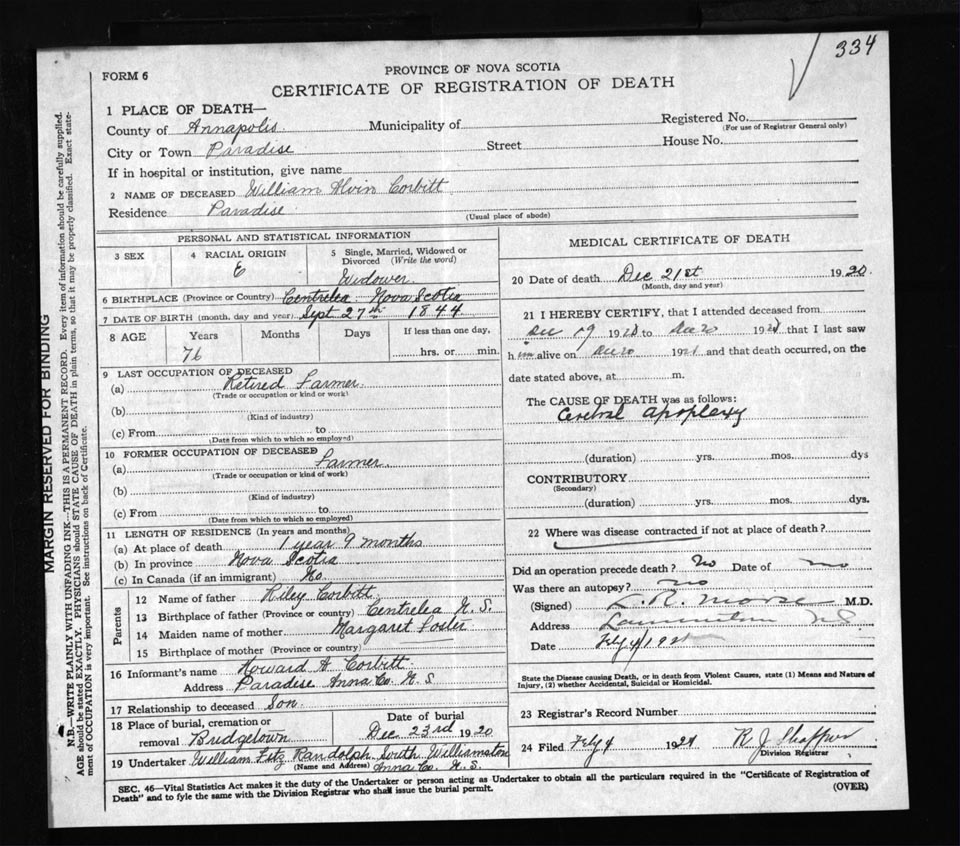 334
FORM 6
PROVINCE OF NOVA SCOTIA
CERTIFICATE OF REGISTRATION OF DEATH
1 PLACE OF DEATH—
County of Annapolis. Municipality of
Registered No.
(For use of Registrar General only)
City or Town Paradise Street House No.
If in hospital or institution, give name
2 NAME OF DECEASED William Alvin Corbitt
Residence Paradise.
(Usual place of abode)
PERSONAL AND STATISTICAL INFORMATION
3 SEX
4 RACIAL ORIGIN
E
5 Single, Married, Widowed or Divorced (Write the word)
Widower.
6 BIRTHPLACE (Province or Country) Centrelea Nova Scotia
7 DATE OF BIRTH (month, day and year) Sept 27th 1844.
8 AGE Years Months Days If less than one day,
76 hrs. or min.
9 LAST OCCUPATION OF DECEASED
(a) Retired Farmer.
(Trade or occupation or kind or work)
(b)
(Kind of industry)
(c) From to
(Date from which to which so employed)
10 FORMER OCCUPATION OF DECEASED
(a) Farmer.
(Trade or occupation or kind of work)
(b)
(Kind of industry)
(c) From to
(Date from which to which so employed)
11 LENGTH OF RESIDENCE (In years and months)
(a) At place of death 1 year 9 months
(b) In province Nova Scotia
(c) In Canada (if an immigrant) No.
Parents
12 Name of father Riley Corbitt
13 Birthplace of father (Province or country) Centrelea N. S.
14 Maiden name of mother Margaret Foster
15 Birthplace of mother (Province or country)
16 Informant's name Howard A Corbitt
Address Paradise Anna Co. N. S
17 Relationship to deceased Son.
18 Place of burial, cremation or removal Bridgetown
Date of burial
Dec 23rd 1920
19 Undertaker William Fitz Randolph South Williamston
(Name and Address) Anna Co. N. S.
MEDICAL CERTIFICATE OF DEATH
20 Date of death Dec 21st 1920.
(Month, day and year)
21 I HEREBY CERTIFY, that I attended deceased from
19 192 to 192 that I last saw
him alive on 192 and that death occurred, on the
date stated above, at m.
The CAUSE OF DEATH was as follows:
Cerebral apoplexy
(duration) yrs. mos. dys
CONTRIBUTORY
(Secondary)
(duration) yrs. mos. dys.
22 Where was disease contracted if not at place of death?
Did an operation precede death? No Date of no
Was there an autopsy? no
(Signed) L. R. Morse M.D.
Address
Date Feby 4/1921
State the Disease causing Death, or in death from Violent Causes, state (1) Means and Nature of
Injury, (2) whether Accidental, Suicidal or Homicidal.
23 Registrar's Record Number
24 Filed Feby 4 1921 R. J. Shaffner
Division Registrar
SEC. 46—Vital Statistics Act makes it the duty of the Undertaker or person acting as Undertaker to obtain all the particulars required in the "Certificate of Registration of
Death" and to fyle the same with the Division Registrar who shall issue the burial permit.
(OVER)
MARGIN RESERVED FOR BINDING
N.B.—WRITE PLAINLY WITH UNFADING INK—THIS IS A PERMANENT RECORD. Every item of information should be carefully supplied.
AGE should be stated EXACTLY. PHYSICIANS should STATE CAUSE OF DEATH in plain terms, so that it may be properly classified. Exact state-
ment of OCCUPATION is very important. See instructions on back of Certificate.